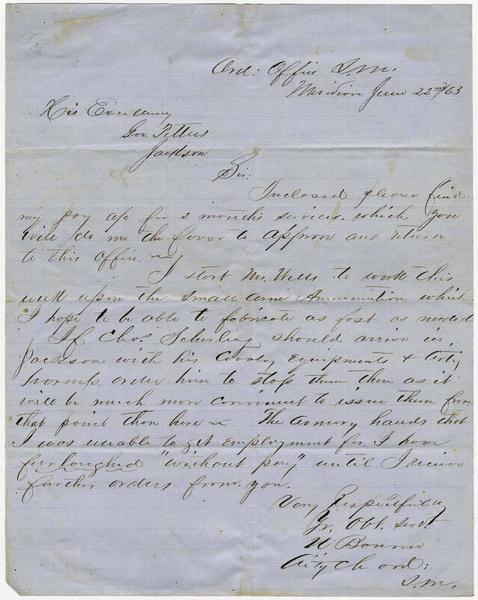 Ord: Office S.M.
Meridian June 22nd/63
His Excellency
Gov. Pettus
Jackson
Sir:
Inclosed please find
my pay a/c for 2 months services. which you
will do me the favor to approve and return
to this office.
I start Mr. Wells to work this
week upon the small arm Ammunition which
I hope to be able to fabricate as fast as needed
If Chas Scherling should arrive in
Jackson with his Cavalry Equipments & Arty
harness order him to stop them there as it
will be much more convenient to issue them from
that point than here The Armory hands that
I was unable to get employment for I have
furloughed "without pay" until I receive
further orders from you.
Very Respectfully
Yr. Obt. Servt
Actg Ch ord:
S.M.